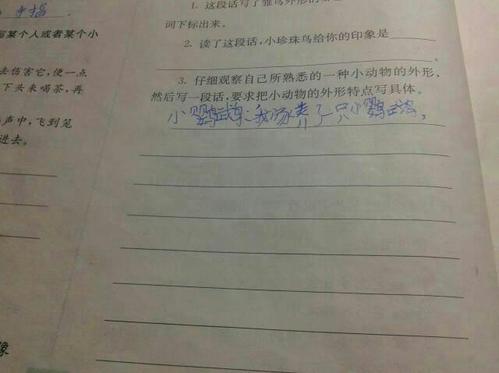 中描
写某个人或者某个小
去伤害它,便一点
下头来喝茶,再
声中,飞到笼
进去。
像
1. 这段话写了雏鸟外形的
词下标出来。
2. 读了这段话,小珍珠鸟给你的印象是
。
3. 仔细观察自己所熟悉的一种小动物的外形,
然后写一段话,要求把小动物的外形特点写具体。
小鹦鹉:我家养了一只小鹦鹉,